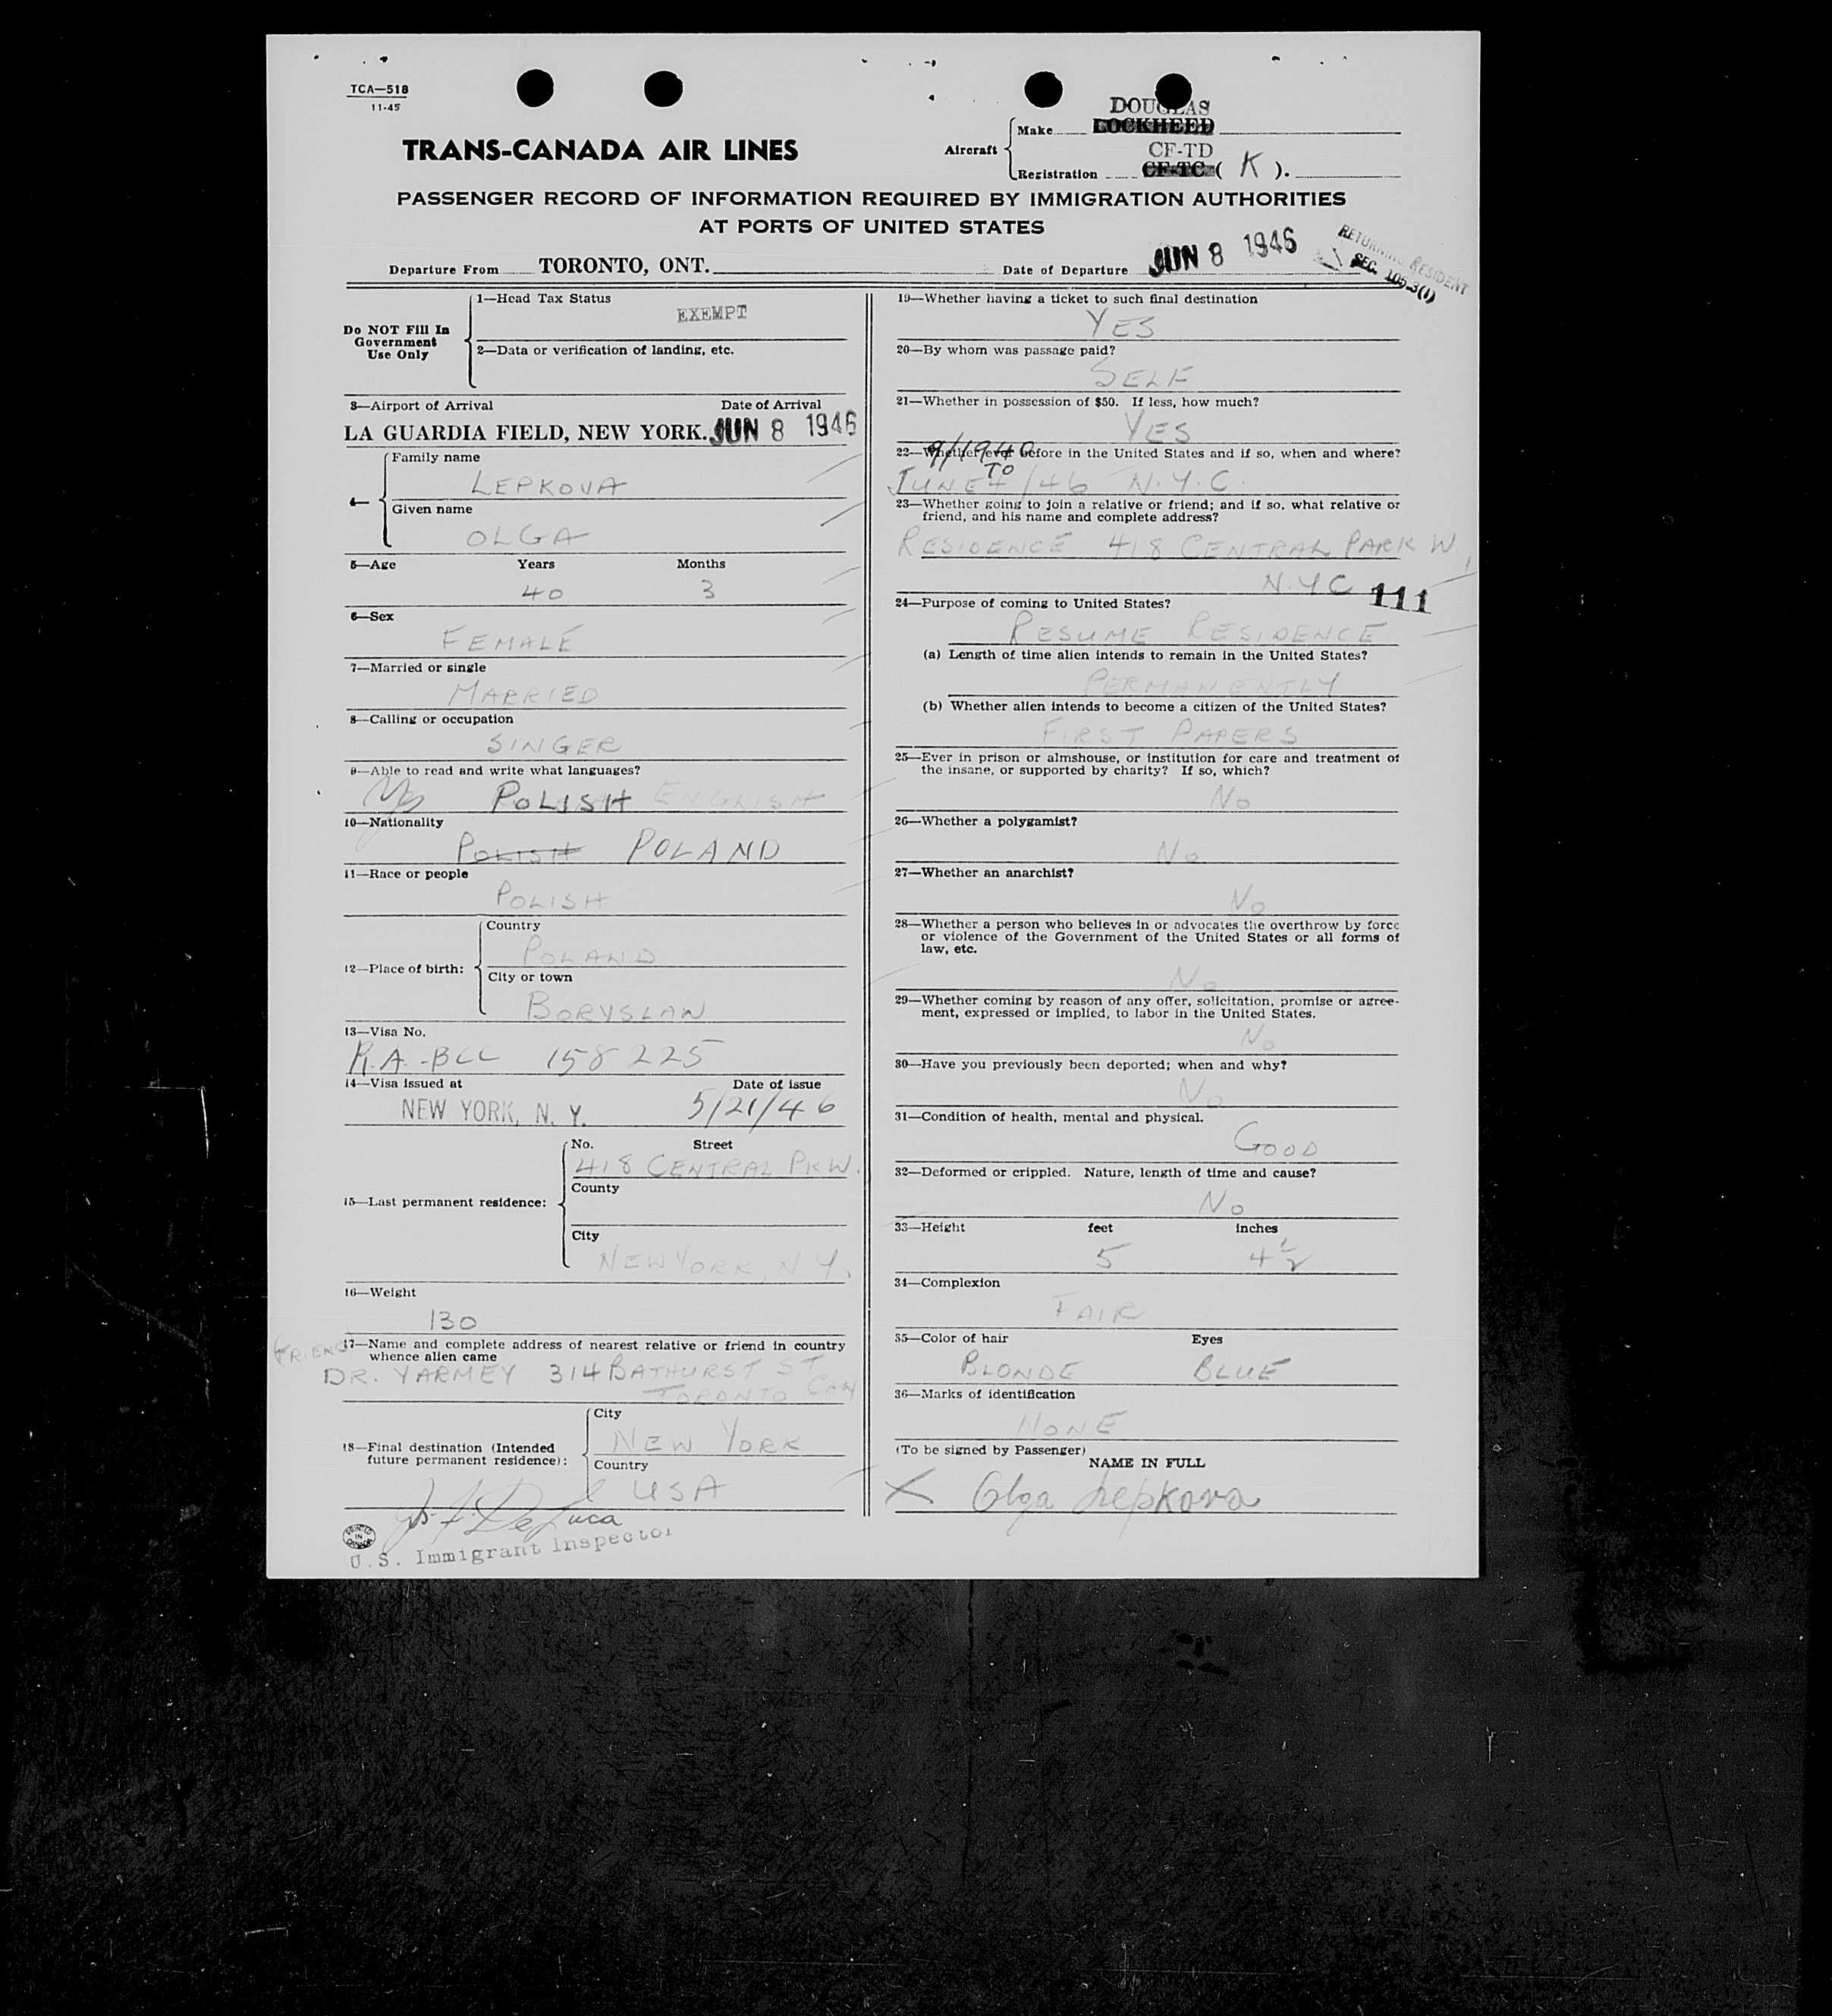 TCA—518
11-45
TRANS-CANADA AIR LINES
Aircraft
Make DOUGLAS
LOCKHEED
CF-TD
Registration CF-TC ( K ).
PASSENGER RECORD OF INFORMATION REQUIRED BY IMMIGRATION AUTHORITIES
AT PORTS OF UNITED STATES
Departure From TORONTO, ONT. Date of Departure JUN 8 1946
RETURNING RESIDENT
SEC. 105-3(1)
Do NOT Fill In
Government
Use Only
1—Head Tax Status
EXEMPT
2—Data or verification of landing, etc.
3—Airport of Arrival Date of Arrival
LA GUARDIA FIELD, NEW YORK. JUN 8 1946
4—
Family name
LEPKOVA
Given name
OLGA
5—Age Years Months
40 3
6—Sex
FEMALE
7—Married or single
MARRIED
8—Calling or occupation
SINGER
9—Able to read and write what languages?
Yes POLISH ENGLISH
10—Nationality
POLISH POLAND
11—Race or people
POLISH
12—Place of birth:
Country
POLAND
City or town
BORYSLAW
13—Visa No.
R.A.-BCC 158225
14—Visa issued at Date of issue
NEW YORK, N. Y. 5/21/46
15—Last permanent residence:
No. Street
418 CENTRAL PKW.
County
City
NEW YORK, N.Y.
16—Weight
130
FRIEND
17—Name and complete address of nearest relative or friend in country
whence alien came
DR. YARMEY 314 BATHURST ST
TORONTO CAN
18—Final destination (Intended
future permanent residence):
City
NEW YORK
Country
USA
J. F. DeLuca
PRINTED IN CANADA
U.S. Immigrant Inspector
19—Whether having a ticket to such final destination
YES
20—By whom was passage paid?
SELF
21—Whether in possession of $50. If less, how much?
YES
22—Whether ever before in the United States and if so, when and where?
9/1940
TO
JUNE 4/46 N.Y.C.
23—Whether going to join a relative or friend; and if so, what relative or
friend, and his name and complete address?
RESIDENCE 418 CENTRAL PARK W.
N.Y.C 111
24—Purpose of coming to United States?
RESUME RESIDENCE
(a) Length of time alien intends to remain in the United States?
PERMANENTLY
(b) Whether alien intends to become a citizen of the United States?
FIRST PAPERS
25—Ever in prison or almshouse, or institution for care and treatment of
the insane, or supported by charity? If so, which?
No
26—Whether a polygamist?
No
27—Whether an anarchist?
No
28—Whether a person who believes in or advocates the overthrow by force
or violence of the Government of the United States or all forms of
law, etc.
No
29—Whether coming by reason of any offer, solicitation, promise or agree-
ment, expressed or implied, to labor in the United States.
No
30—Have you previously been deported; when and why?
No
31—Condition of health, mental and physical.
GOOD
32—Deformed or crippled. Nature, length of time and cause?
No
33—Height feet inches
5 4½
34—Complexion
FAIR
35—Color of hair Eyes
BLONDE BLUE
36—Marks of identification
NONE
(To be signed by Passenger)
NAME IN FULL
X Olga Lepkova